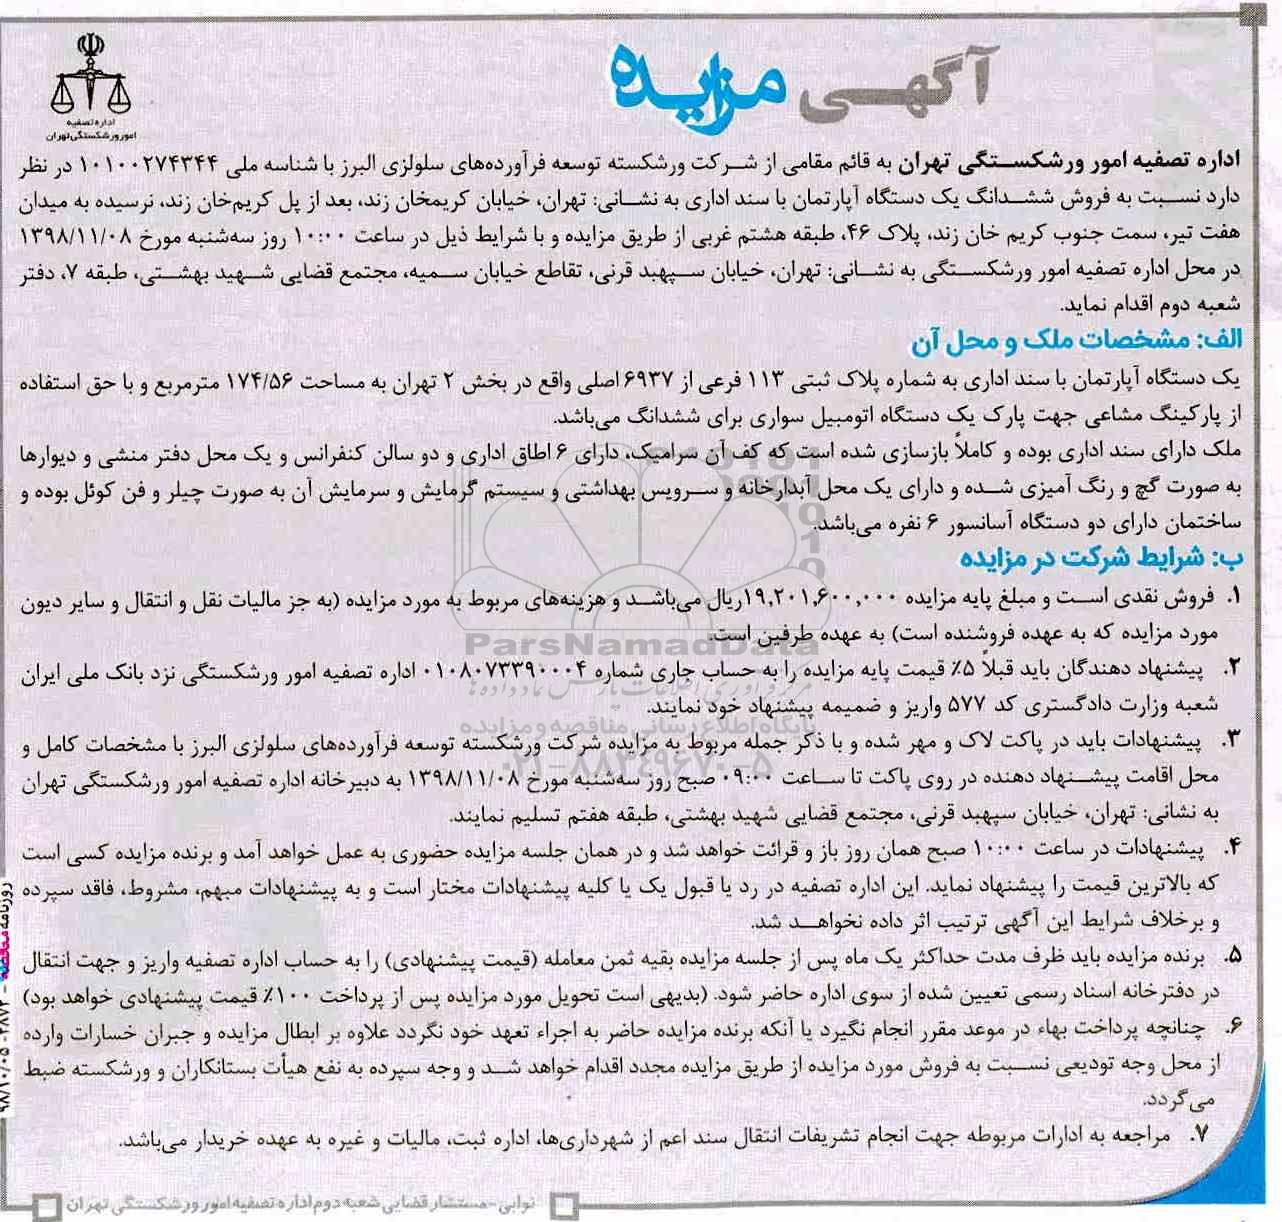 آگهی مزایده
اداره تصفیه
امور ورشکستگی تهران
اداره تصفیه امور ورشکستگی تهران به قائم مقامی از شرکت ورشکسته توسعه فرآورده‌های سلولزی البرز با شناسه ملی ۱۰۱۰۰۲۷۴۳۴۴ در نظر
دارد نسبت به فروش ششدانگ یک دستگاه آپارتمان با سند اداری به نشانی: تهران، خیابان کریمخان زند، بعد از پل کریم‌خان زند، نرسیده به میدان
هفت تیر، سمت جنوب کریم خان زند، پلاک ۴۶، طبقه هشتم غربی از طریق مزایده و با شرایط ذیل در ساعت ۱۰:۰۰ روز سه‌شنبه مورخ ۱۳۹۸/۱۱/۰۸
در محل اداره تصفیه امور ورشکستگی به نشانی: تهران، خیابان سپهبد قرنی، تقاطع خیابان سمیه، مجتمع قضایی شهید بهشتی، طبقه ۷، دفتر
شعبه دوم اقدام نماید.
الف: مشخصات ملک و محل آن
یک دستگاه آپارتمان با سند اداری به شماره پلاک ثبتی ۱۱۳ فرعی از ۶۹۳۷ اصلی واقع در بخش ۲ تهران به مساحت ۱۷۴/۵۶ مترمربع و با حق استفاده
از پارکینگ مشاعی جهت پارک یک دستگاه اتومبیل سواری برای ششدانگ می‌باشد.
ملک دارای سند اداری بوده و کاملاً بازسازی شده است که کف آن سرامیک، دارای ۶ اطاق اداری و دو سالن کنفرانس و یک محل دفتر منشی و دیوارها
به صورت گچ و رنگ آمیزی شده و دارای یک محل آبدارخانه و سرویس بهداشتی و سیستم گرمایش و سرمایش آن به صورت چیلر و فن کوئل بوده و
ساختمان دارای دو دستگاه آسانسور ۶ نفره می‌باشد.
ب: شرایط شرکت در مزایده
۱. فروش نقدی است و مبلغ پایه مزایده ۱۹,۲۰۱,۶۰۰,۰۰۰ریال می‌باشد و هزینه‌های مربوط به مورد مزایده (به جز مالیات نقل و انتقال و سایر دیون
مورد مزایده که به عهده فروشنده است) به عهده طرفین است.
۲. پیشنهاد دهندگان باید قبلاً ۵٪ قیمت پایه مزایده را به حساب جاری شماره ۰۱۰۸۰۷۳۳۹۰۰۰۴ اداره تصفیه امور ورشکستگی نزد بانک ملی ایران
شعبه وزارت دادگستری کد ۵۷۷ واریز و ضمیمه پیشنهاد خود نمایند.
۳. پیشنهادات باید در پاکت لاک و مهر شده و با ذکر جمله مربوط به مزایده شرکت ورشکسته توسعه فرآورده‌های سلولزی البرز با مشخصات کامل و
محل اقامت پیشنهاد دهنده در روی پاکت تا ساعت ۰۹:۰۰ صبح روز سه‌شنبه مورخ ۱۳۹۸/۱۱/۰۸ به دبیرخانه اداره تصفیه امور ورشکستگی تهران
به نشانی: تهران، خیابان سپهبد قرنی، مجتمع قضایی شهید بهشتی، طبقه هفتم تسلیم نمایند.
۴. پیشنهادات در ساعت ۱۰:۰۰ صبح همان روز باز و قرائت خواهد شد و در همان جلسه مزایده حضوری به عمل خواهد آمد و برنده مزایده کسی است
که بالاترین قیمت را پیشنهاد نماید. این اداره تصفیه در رد یا قبول یک یا کلیه پیشنهادات مختار است و به پیشنهادات مبهم، مشروط، فاقد سپرده
و برخلاف شرایط این آگهی ترتیب اثر داده نخواهد شد.
۵. برنده مزایده باید ظرف مدت حداکثر یک ماه پس از جلسه مزایده بقیه ثمن معامله (قیمت پیشنهادی) را به حساب اداره تصفیه واریز و جهت انتقال
در دفترخانه اسناد رسمی تعیین شده از سوی اداره حاضر شود. (بدیهی است تحویل مورد مزایده پس از پرداخت ۱۰۰٪ قیمت پیشنهادی خواهد بود)
۶. چنانچه پرداخت بهاء در موعد مقرر انجام نگیرد یا آنکه برنده مزایده حاضر به اجراء تعهد خود نگردد علاوه بر ابطال مزایده و جبران خسارات وارده
از محل وجه تودیعی نسبت به فروش مورد مزایده از طریق مزایده مجدد اقدام خواهد شد و وجه سپرده به نفع هیأت بستانکاران و ورشکسته ضبط
می‌گردد.
۷. مراجعه به ادارات مربوطه جهت انجام تشریفات انتقال سند اعم از شهرداری‌ها، اداره ثبت، مالیات و غیره به عهده خریدار می‌باشد.
نوایی-مستشار قضایی شعبه دوم اداره تصفیه امور ورشکستگی تهران
ParsNamadData
پایگاه اطلاع رسانی مناقصه و مزایده
۰۲۱-۸۸۳۴۹۶۷۰-۵
روزنامه مناقصه
۹۸/۱۰/۰۵